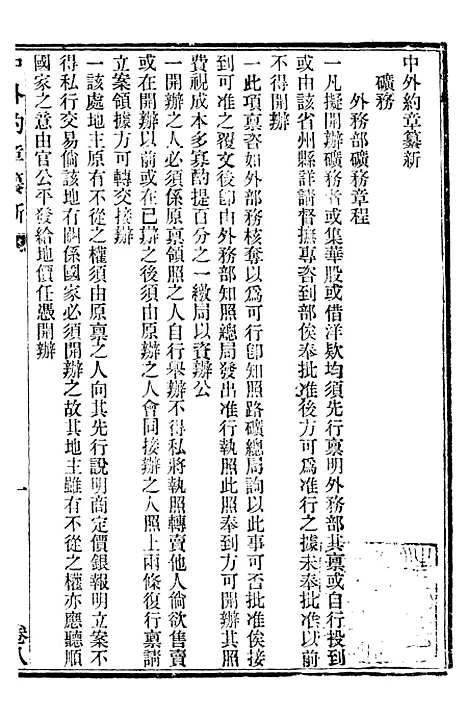 中外約章纂新
礦務
外務部礦務章程
一凡擬開辦礦務者或集華股或借洋欵均須先行稟明外務部其稟或自行投到
或由該省州縣詳請督撫專咨到部俟奉批准後方可爲准行之據未奉批准以前
不得開辦
一此項稟咨如外部務核奪以爲可行卽知照路礦總局詢以此事可否批准俟接
到可准之覆文後卽由外務部知照總局發出准行執照此照奉到方可開辦其照
費視成本多寡酌提百分之一繳局以資辦公
一開辦之人必須係原稟領照之人自行舉辦不得私將執照轉賣他人倘欲售賣
或在開辦以前或在已辦之後須由原辦之人會同接辦之人照上兩條復行稟請
立案領據方可轉交接辦
一該處地主原有不從之權須由原稟之人向其先行說明商定價銀報明立案不
得私行交易倘該地有關係國家必須開辦之故其地主雖有不從之權亦應聽順
國家之意由官公平發給地價任憑開辦
中外約章纂新
一
卷八